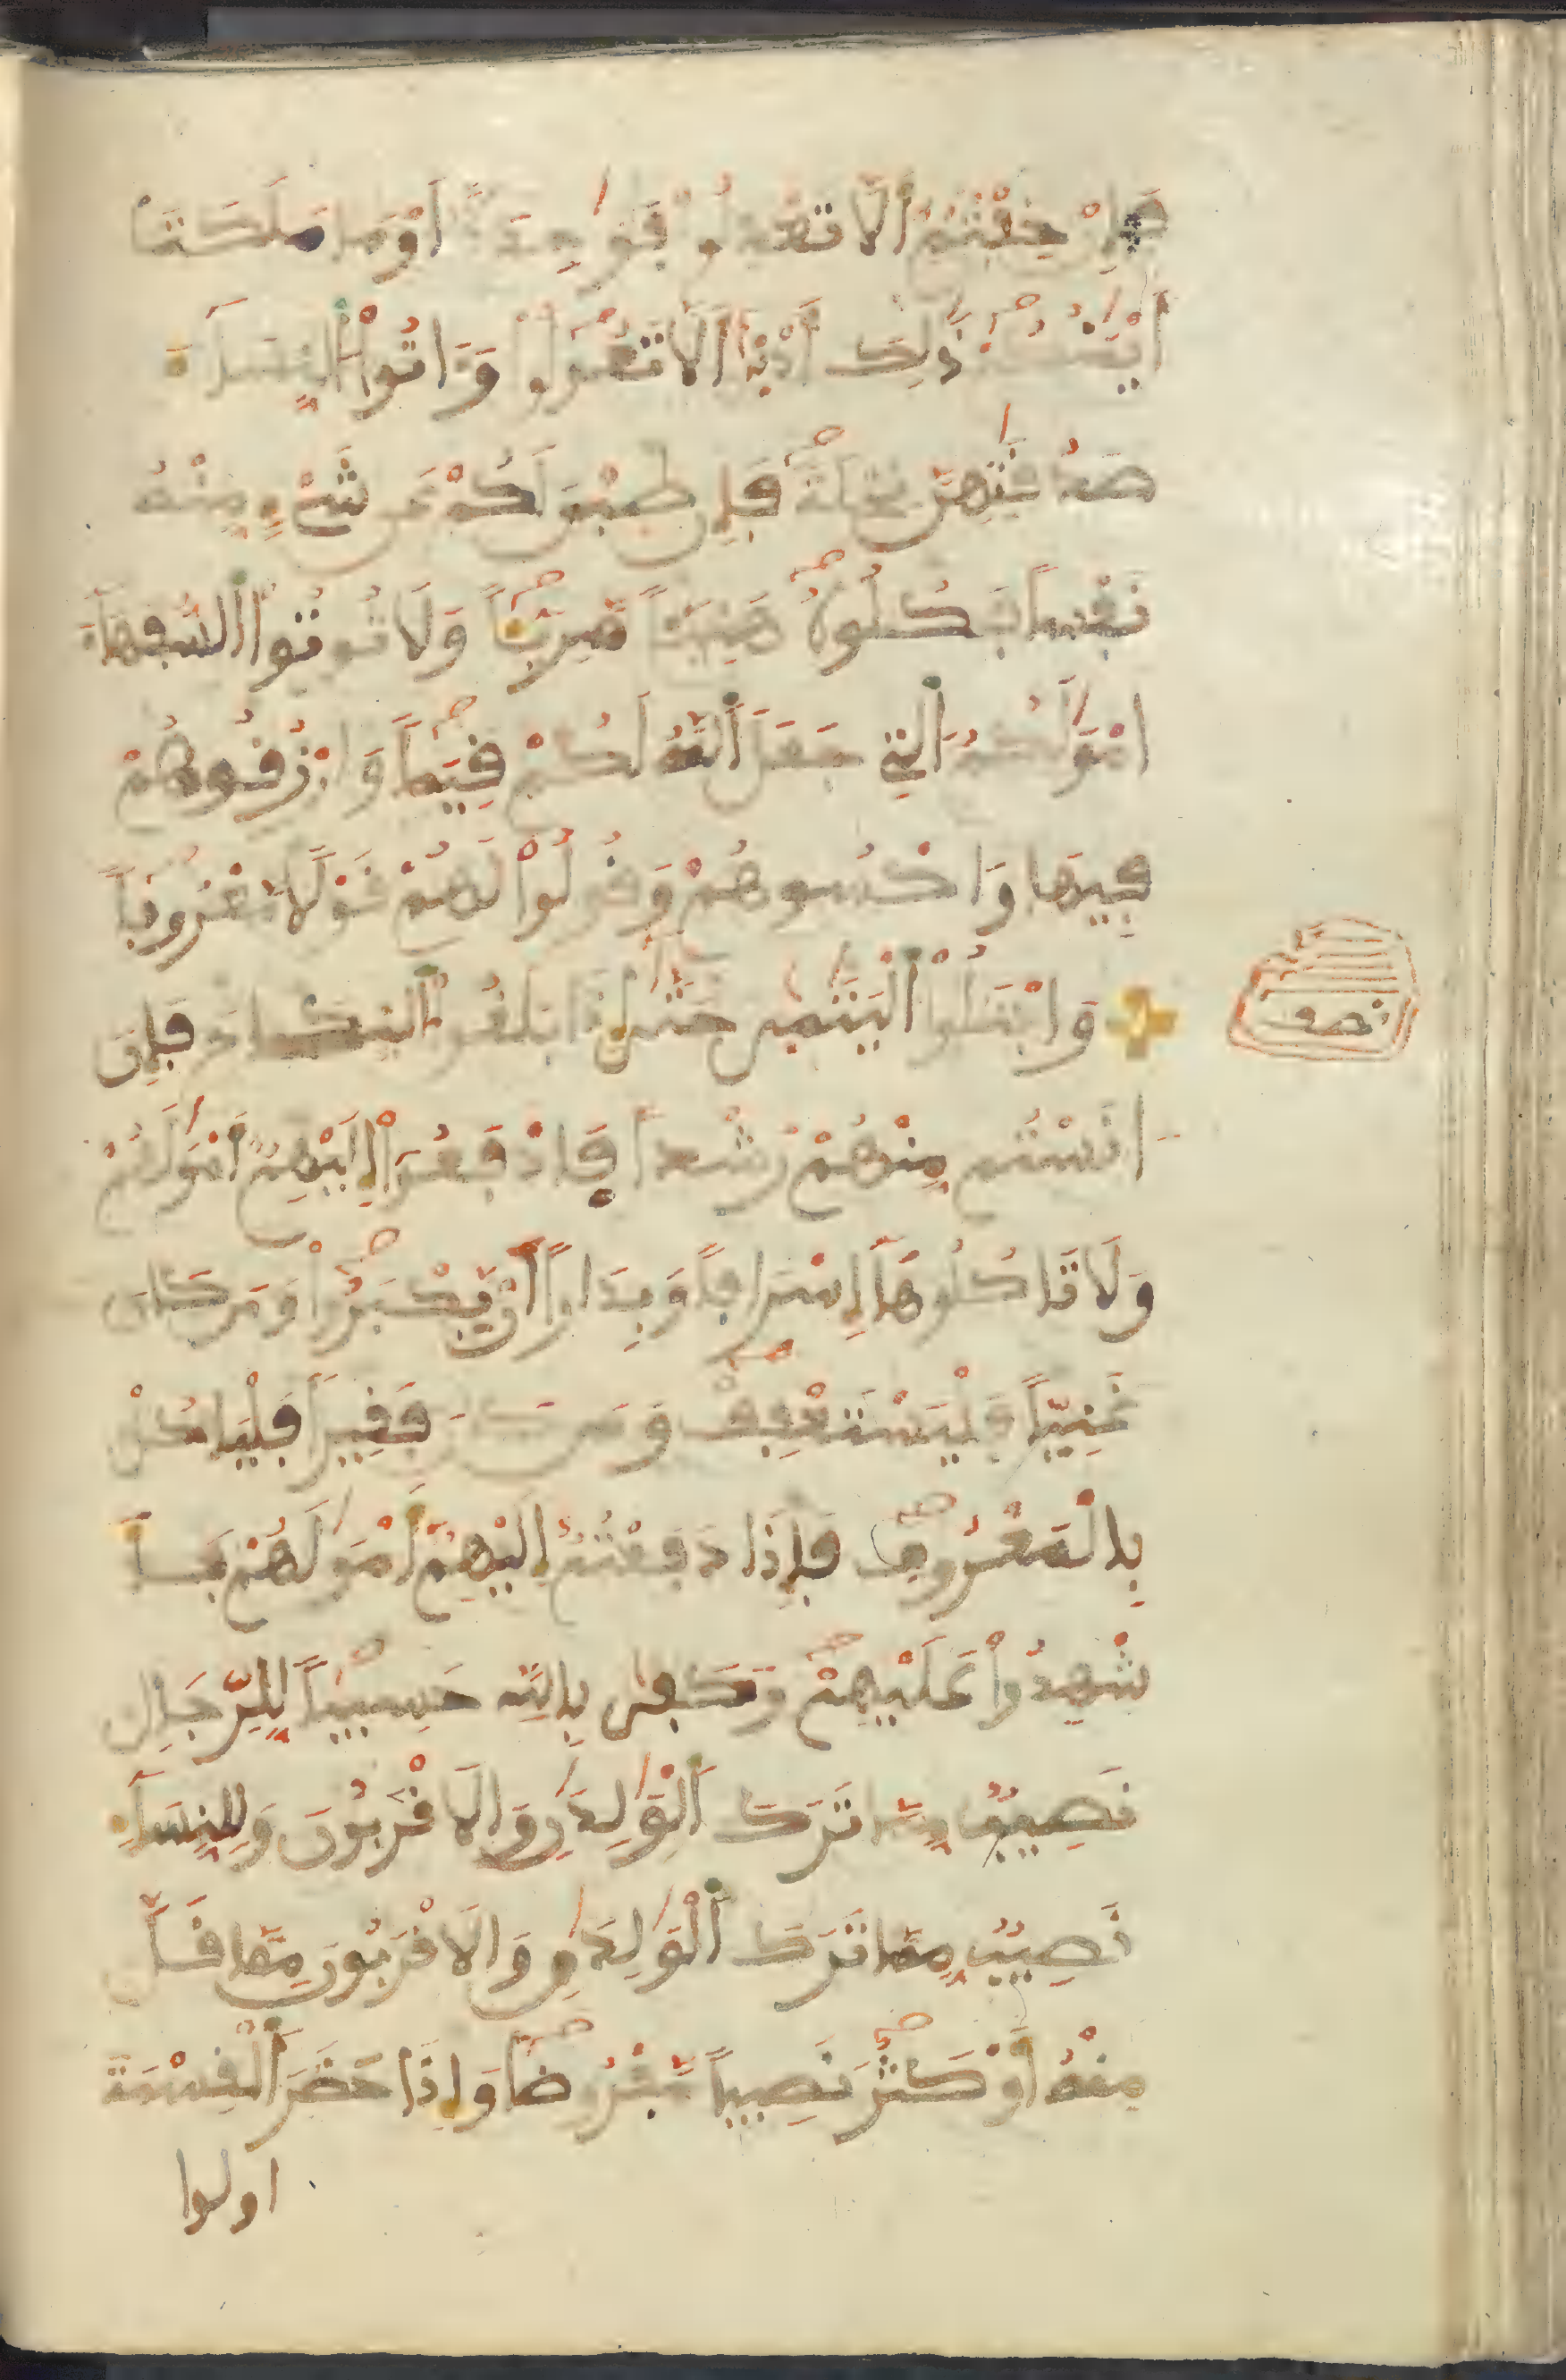 فَإِنْ خِفْتُمُ أَلَّا تَعْدِلُوا فَوَٰحِدَةً اَوْ مَا مَلَكَتَ
اَيْمَٰنُكُمْ ذَٰلِكَ أَدْنَىٰ أَلَّا تَعُولُوا وَءَاتُوا النِّسَآءَ
صَدُقَٰتِهِنَّ نِحْلَةً فَإِن طِبْنَ لَكُمْ عَن شَيْءٍ مِّنْهُ
نَفْساً فَكُلُوهُ هَنِيٓـٔاً مَّرِيٓـٔاً وَلَا تُوتُوا السُّفَهَآءَ
امْوَٰلَكُمُ الَّتِي جَعَلَ اللَّهُ لَكُمْ قِيَماً وَارْزُقُوهُمْ
فِيهَا وَاكْسُوهُمْ وَقُولُوا لَهُمْ قَوْلًا مَّعْرُوفاً
نصف
وَابْتَلُوا الْيَتَٰمَىٰ حَتَّىٰ إِذَا بَلَغُوا النِّكَاحَ فَإِنَ
انَسْتُم مِّنْهُمْ رُشْداً فَادْفَعُوا إِلَيْهِمُ أَمْوَٰلَهُمْ
وَلَا تَاكُلُوهَآ إِسْرَافاً وَبِدَاراً أَنْ يَّكْبَرُوا وَمَن كَانَ
غَنِيّاً فَلْيَسْتَعْفِفْ وَمَن كَانَ فَقِيراً فَلْيَاكُلْ
بِالْمَعْرُوفِ فَإِذَا دَفَعْتُمُ إِلَيْهِمُ أَمْوَٰلَهُمْ فَأَ
شْهِدُوا عَلَيْهِمْ وَكَفَىٰ بِاللَّهِ حَسِيباً لِّلرِّجَالِ
نَصِيبٌ مِّمَّا تَرَكَ الْوَٰلِدَٰنِ وَالَاقْرَبُونَ وَلِلنِّسَآءِ
نَصِيبٌ مِّمَّا تَرَكَ الْوَٰلِدَٰنِ وَالَاقْرَبُونَ مِمَّا قَلَّ
مِنْهُ أَوْ كَثُرَ نَصِيباً مَّفْرُوضاً وَإِذَا حَضَرَ الْقِسْمَةَ
اولوا